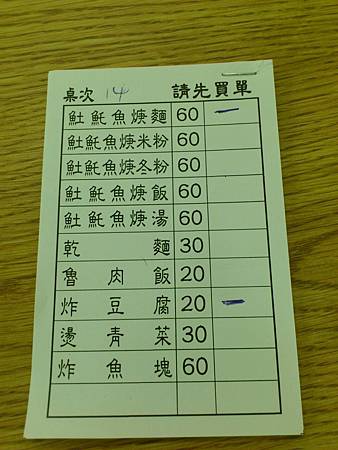 桌次 14 請先買單
𩵚魠魚焿麵 60 一
𩵚魠魚焿米粉 60
𩵚魠魚焿冬粉 60
𩵚魠魚焿飯 60
𩵚魠魚焿湯 60
乾麵 30
魯肉飯 20
炸豆腐 20 一
燙青菜 30
炸魚塊 60